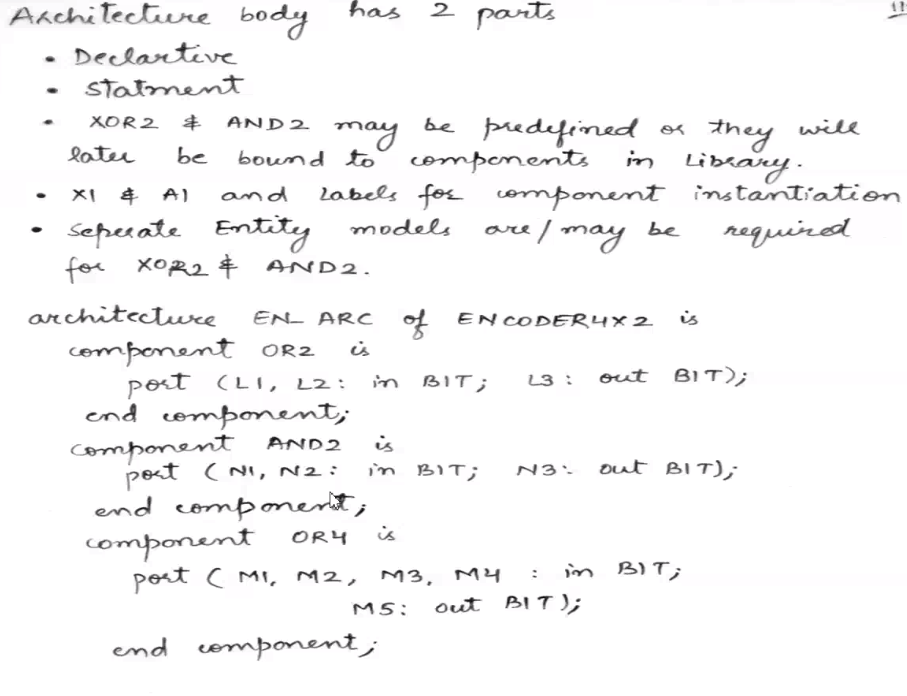 Architecture body has 2 parts
11
• Declartive
• Statment
• XOR2 & AND2 may be predefined or they will
later be bound to components in Library.
• X1 & A1 and Labels for component instantiation
• Seperate Entity models are/may be required
for XOR2 & AND2.
architecture EN_ARC of ENCODER4X2 is
component OR2 is
port (L1, L2: in BIT; L3: out BIT);
end component;
component AND2 is
port (N1, N2: in BIT; N3: out BIT);
end component;
component OR4 is
port (M1, M2, M3, M4 : in BIT;
M5: out BIT);
end component;